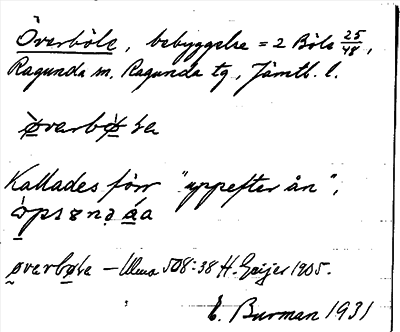 Överböle, bebyggelse = 2 Böle 25/48,
Ragunda sn, Ragunda tg, Jämtl. l.
øverbøła
Kallades förr "uppefter ån",
åa
øverbøła – Ulma 508:38 H. Geijer 1905.
E. Burman 1931